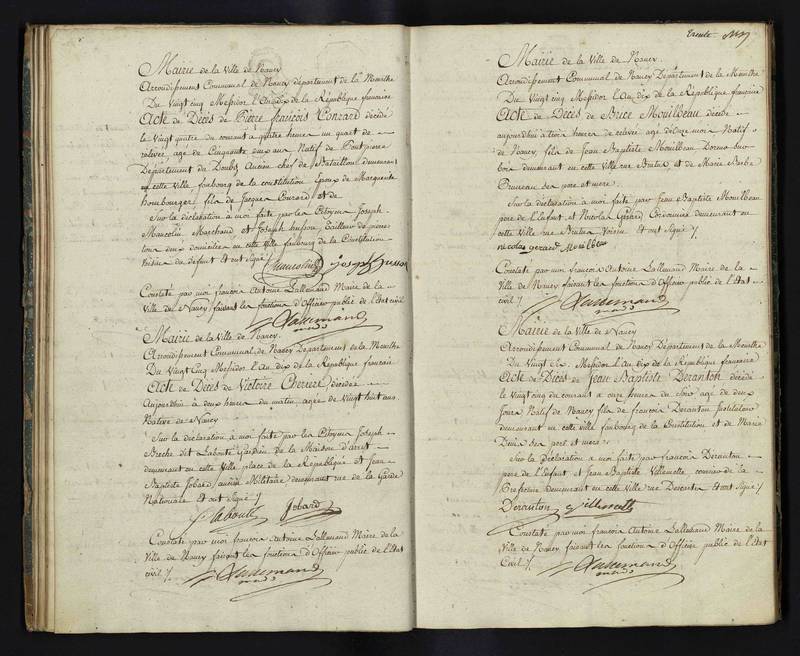 Mairie de la Ville de Nancy
Arrondissement Communal de Nancy département de la Meurthe
Du Vingt cinq Messidor l'an dix de la République française
Acte de Décès de Pierre françois Conrard décédé
le Vingt quatre du courant à quatre heures un quart de
relevée, agé de Cinquante deux ans Natif de Pontpierre
Département de Doubs, Ancien chef de Bataillon demeurant
en cette Ville, faubourg de la constitution, Epoux de Marguerite
Hombourger, fils de Jacques Conrard et de
Sur la déclaration à moi faite par les Citoyens Joseph
Marcollin Marchand et Joseph husson, Tailleur de pierres
tous deux domiciliés en cette Ville faubourg de la Constitution
Voisins du défunt Et ont signé /.
Joseph husson
Constaté par moi françois Antoine Lallemand Maire de la
Ville de Nancy faisant les fonctions d'Officier public de l'Etat civil
Lallemand
Mairie de la Ville de Nancy.
Arrondissement Communal de Nancy Département de la Meurthe
Du Vingt cinq Messidor l'an dix de la République française
Acte de Décès de Victoire Cherrere, décédée
Aujourd'hui à deux heures du matin, agée de Vingt huit ans
Native de Nancy
Sur la déclaration à moi faite par les Citoyens Joseph
Breche dit Labouté Gardien de la Maison d'arret
demeurant en cette Ville place de la République et Jean
Baptiste Jobard, ancien Militaire demeurant rue de la Garde
Nationale Et ont signé /.
Labouté Jobard
Constaté par moi françois Antoine Lallemand Maire de la
Ville de Nancy faisant les fonctions d'Officier public de l'Etat
civil /.
Lallemand
Trente
Mairie de la Ville de Nancy.
Arrondissement Communal de Nancy Département de la Meurthe
Du Vingt cinq Messidor l'an dix de la République française
Acte de Décès de Brice Mouilbeau décédé
aujourd'hui à trois heures de relevée agé de onze mois Natif
de Nancy, fils de Jean Baptiste Mouilbeau
demeurant en cette Ville rue Brutus et de Marie Barbe
Pruneau ses pere et mere.
Sur la déclaration à moi faite par Jean Baptiste Mouilbeau
pere de l'Enfant et Nicolas Gérard Cordonnier demeurant en
cette Ville rue Brutus Voisin Et ont signé /.
nicolas gerard Mouilbeau
Constaté par moi françois Antoine Lallemand Maire de la
Ville de Nancy faisant les fonctions d'Officier public de l'Etat
civil /.
Lallemand
Mairie de la Ville de Nancy
Arrondissement Communal de Nancy Département de la Meurthe
Du Vingt six Messidor l'an dix de la République française
Acte de Décès de Jean Baptiste Deranton décédé
le Vingt cinq du courant à onze heures du soir agé de deux
Jours Natif de Nancy fils de françois Deranton Instituteur
demeurant en cette Ville faubourg de la Constitution et de Marie
ses pere et mere
Sur la Déclaration à moi faite par françois Deranton
pere de l'Enfant et Jean Baptiste Villemotte commis de la
Préfecture demeurant en cette Ville rue Descartes Et ont signé /.
Deranton Villemotte
Constaté par moi françois Antoine Lallemand Maire de la
Ville de Nancy faisant les fonctions d'Officier public de l'Etat
Civil /.
Lallemand